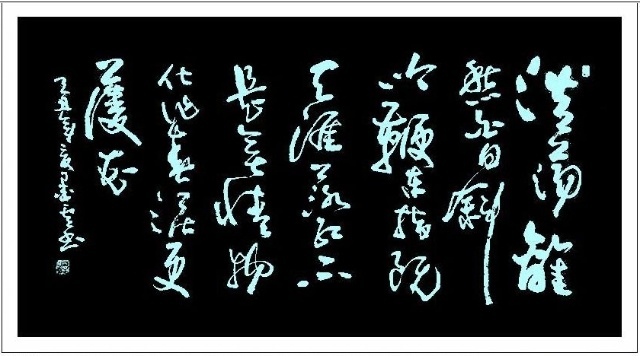 浩蕩離
愁白日斜
吟鞭東指即
天涯落紅不
是無情物
化作春泥更
護花
丁亥年夏